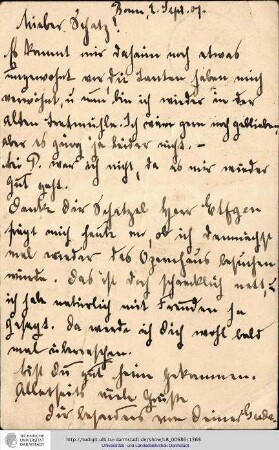 Bonn, 2. Sept. 07.
Mein lieber Schatz!
Es kommt mir daheim noch etwas
ungewohnt vor, die Tanten haben mich
verwöhnt, u nun bin ich wieder in der
alten Tretmühle. Ich wäre gern noch geblieben
aber es ging ja leider nicht. —
bei P. war ich nicht, da es mir wieder
gut geht.
Denke Dir Schatzel Herr
frägt mich heute an, ob ich demnächst
mal wieder das Opernhaus besuchen
würde. Das ist doch schrecklich nett, u
ich habe natürlich mit Freuden ja
gesagt. Da werde ich Dich wohl bald
mal überraschen.
bist Du gut heim gekommen.
Allerseits viele Grüße
Dir besonders von Deiner
TECHNISCHE
UNIVERSITÄT
DARMSTADT
Universitäts- und Landesbibliothek Darmstadt